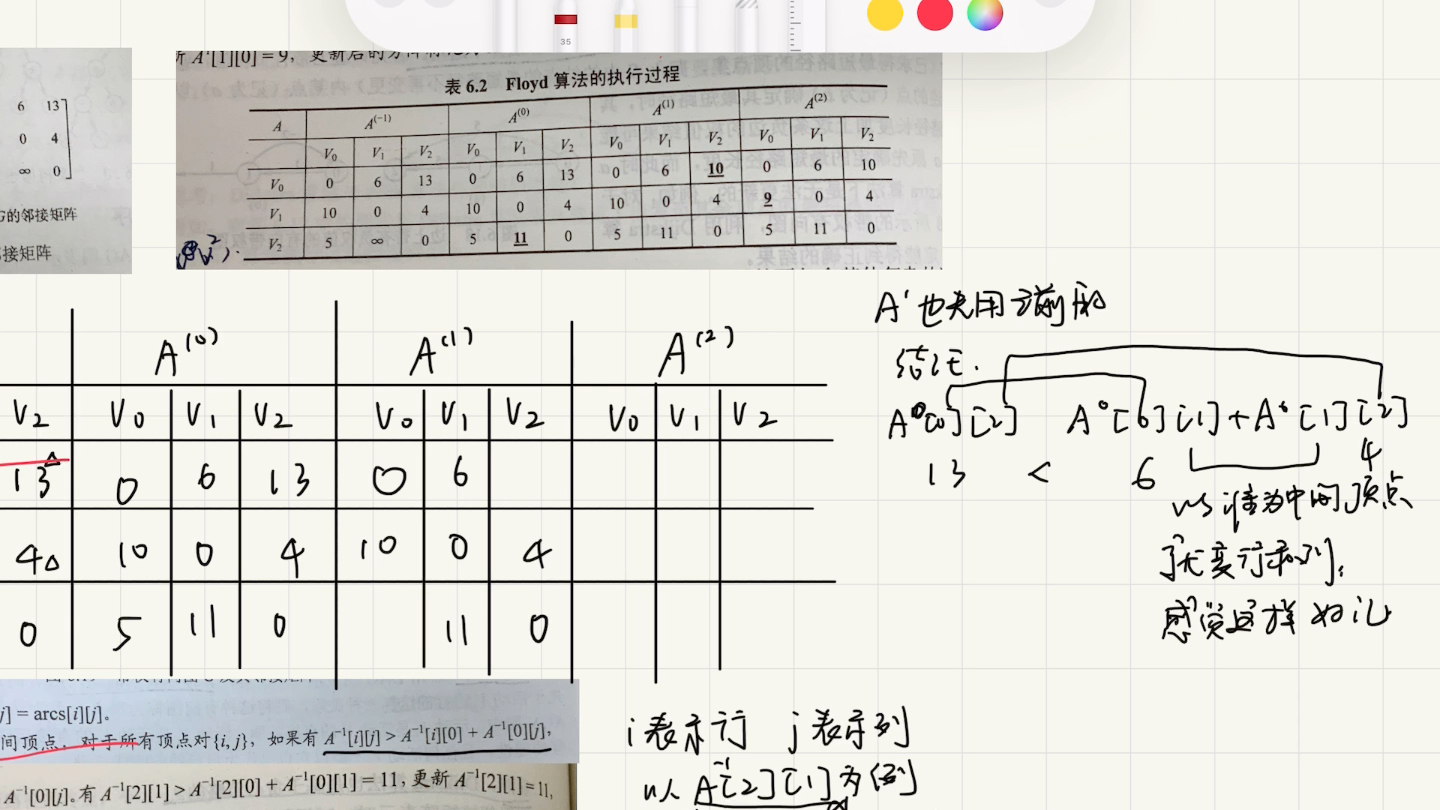 35
析 A¹[1][0] = 9, 更新后的方阵
表 6.2 Floyd 算法的执行过程
A A⁽⁻¹⁾ A⁽⁰⁾ A⁽¹⁾ A⁽²⁾
V₀ V₁ V₂ V₀ V₁ V₂ V₀ V₁ V₂ V₀ V₁ V₂
V₀ 0 6 13 0 6 13 0 6 10 0 6 10
V₁ 10 0 4 10 0 4 10 0 4 9 0 4
V₂ 5 ∞ 0 5 11 0 5 11 0 5 11 0
6 13
0 4
∞ 0
G的邻接矩阵
接矩阵
A⁽⁰⁾ A⁽¹⁾ A⁽²⁾
V₂ V₀ V₁ V₂ V₀ V₁ V₂ V₀ V₁ V₂
13 0 6 13 0 6
4 10 0 4 10 0 4
0 5 11 0 11 0
A' 也先用之前的
结论.
A⁰[0][2] A⁰[0][1]+A⁰[1][2]
13 < 6 4
以谁为中间顶点
就变行和列,
感觉这样好记
j] = arcs[i][j]。
间顶点, 对于所有顶点对{i, j}, 如果有 A⁻¹[i][j] > A⁻¹[i][0] + A⁻¹[0][j],
A⁻¹[0][j]。有 A⁻¹[2][1] > A⁻¹[2][0] + A⁻¹[0][1] = 11, 更新 A⁻¹[2][1] = 11,
i表示行 j表示列
以 A⁻¹[2][1] 为例